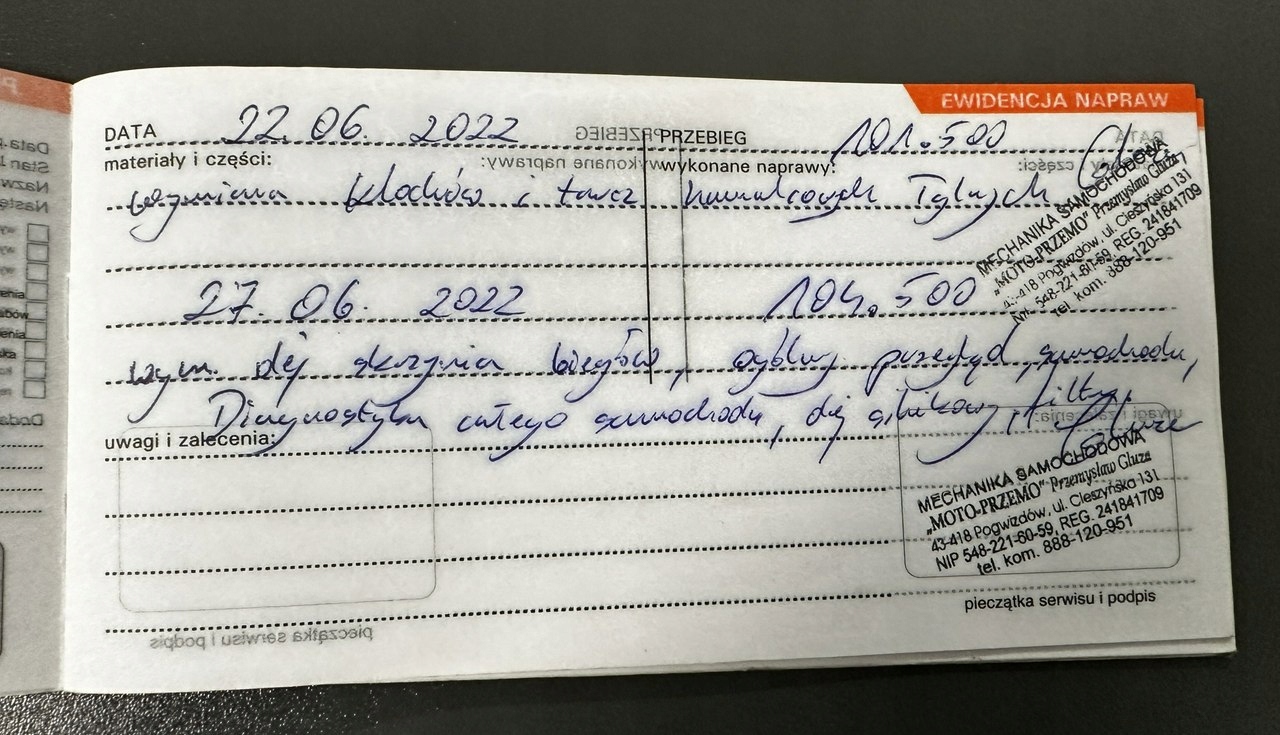 EWIDENCJA NAPRAW
DATA 22.06.2022 PRZEBIEG 101.500
materiały i części: wykonane naprawy:
wymiana klocków i tarcz hamulcowych Tylnych
MECHANIKA SAMOCHODOWA
„MOTO-PRZEMO" Przemysław Gluza
43-418 Pogwizdów, ul. Cieszyńska 131
NIP 548-221-60-59, REG. 241841709
tel. kom. 888-120-951
27.06.2022 104.500
wym. olej skrzynia biegów, ogólny przegląd samochodu,
Diagnostyka całego samochodu, olej silnikowy, filtry,
uwagi i zalecenia:
MECHANIKA SAMOCHODOWA
„MOTO-PRZEMO" Przemysław Gluza
43-418 Pogwizdów, ul. Cieszyńska 131
NIP 548-221-60-59, REG. 241841709
tel. kom. 888-120-951
pieczątka serwisu i podpis